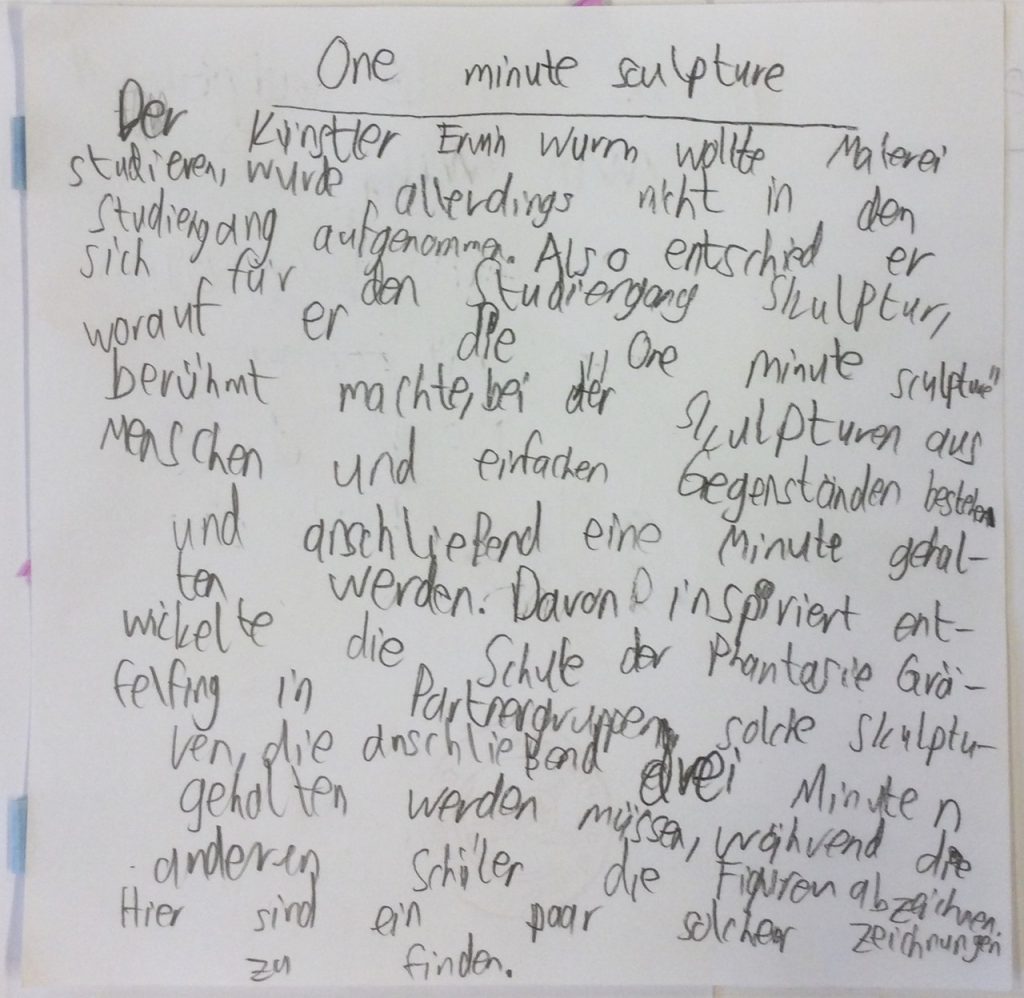 One minute sculpture
Der Künstler Erwin Wurm wollte Malerei
studieren, wurde allerdings nicht in den
Studiengang aufgenommen. Also entschied er
sich für den Studiengang Skulptur,
worauf er die "One minute sculpture"
berühmt machte, bei der Skulpturen aus
Menschen und einfachen Gegenständen bestehen
und anschließend eine Minute gehal-
ten werden. Davon inspiriert ent-
wickelte die Schule der Phantasie Grä-
felfing in Partnergruppen solche Skulptu-
ren, die anschließend drei Minuten
gehalten werden müssen, während die
anderen Schüler die Figuren abzeichnen.
Hier sind ein paar solcher Zeichnungen
zu finden.